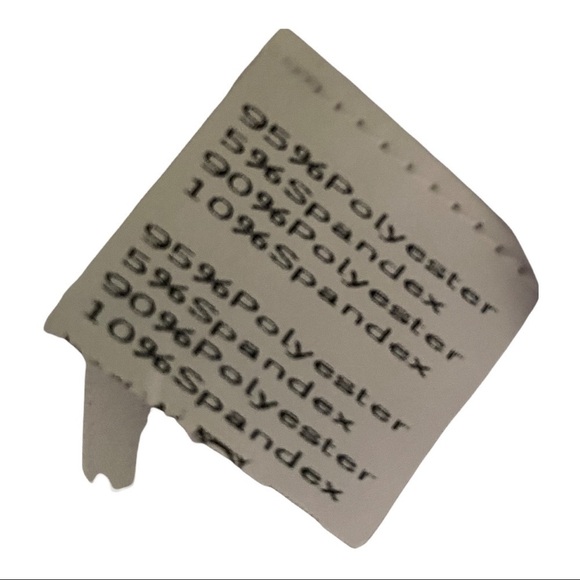 95%Polyester
5%Spandex
90%Polyester
10%Spandex
95%Polyester
5%Spandex
90%Polyester
10%Spandex